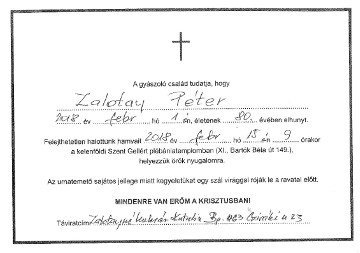 A gyászoló család tudatja, hogy
Zalotay Péter
2018 év febr hó 1 én, életének 80. évében elhunyt.
Felejthetetlen halottunk hamvait 2018 év febr hó 15 én 9 órakor
a kelenföldi Szent Gellért plébániatemplomban (XI., Bartók Béla út 149.),
helyezzük örök nyugalomra.
Az urnatemető sajátos jellege miatt kegyeletüket egy szál virággal róják le a ravatal előtt.
MINDENRE VAN ERŐM A KRISZTUSBAN!
Táviratcím: Zalotayné Katalin Bp. 1123 23